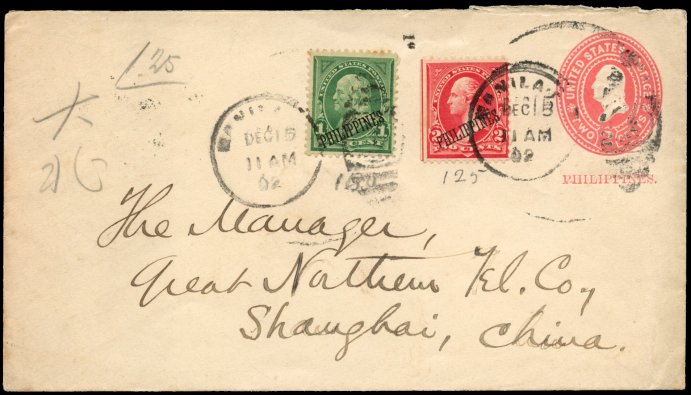 1.25
UNITED STATES POSTAGE
TWO CENTS
PHILIPPINES.
1 CENT 1
PHILIPPINES
2 CENTS 2
PHILIPPINES
MANILA
DEC 15
11 AM
02
MANILA
DEC 15
11 AM
02
125
The Manager,
Great Northern Tel. Co,
Shanghai, China.